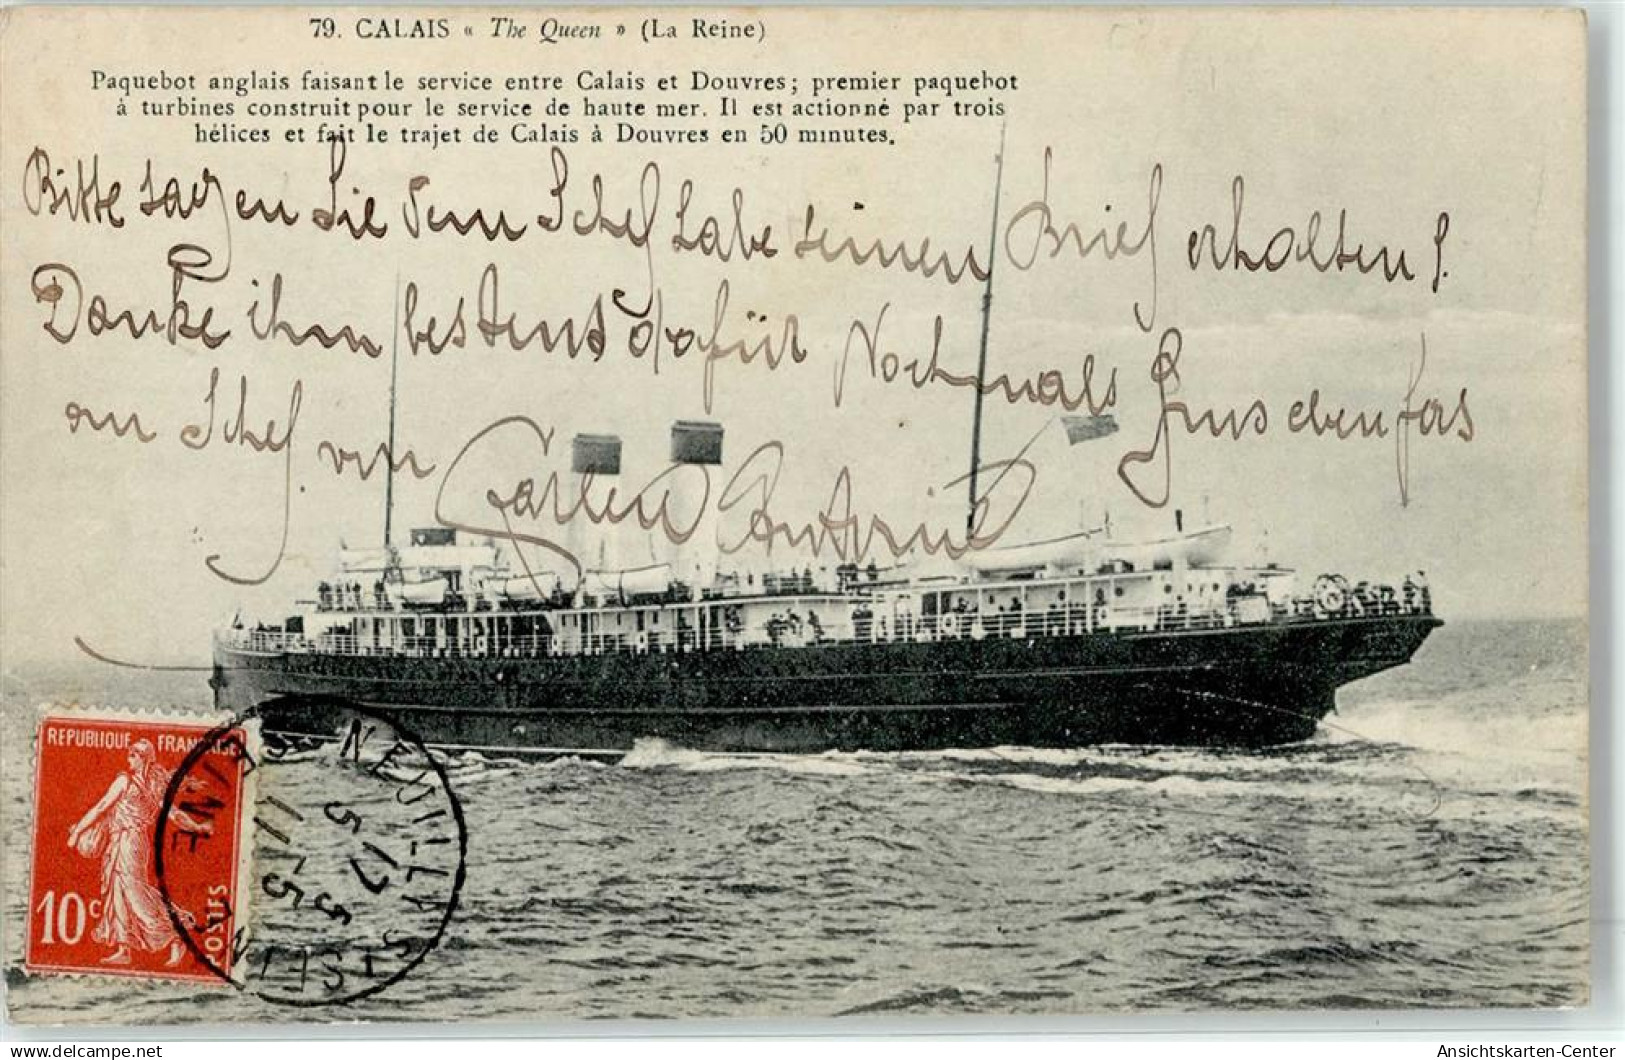 79. CALAIS « The Queen » (La Reine)
Paquebot anglais faisant le service entre Calais et Douvres; premier paquebot
à turbines construit pour le service de haute mer. Il est actionné par trois
hélices et fait le trajet de Calais à Douvres en 50 minutes.
Bitte sagen Sie dem Schef habe seinen Brief erhalten!
Danke ihm bestens dafür Nochmals Gruss ebenfals
an Schef von
REPUBLIQUE FRANÇAISE
10c
POSTES
NEUILLY S SEINE
SEINE
5 17
11-5
Ansichtskarten-Center
delcampe.net